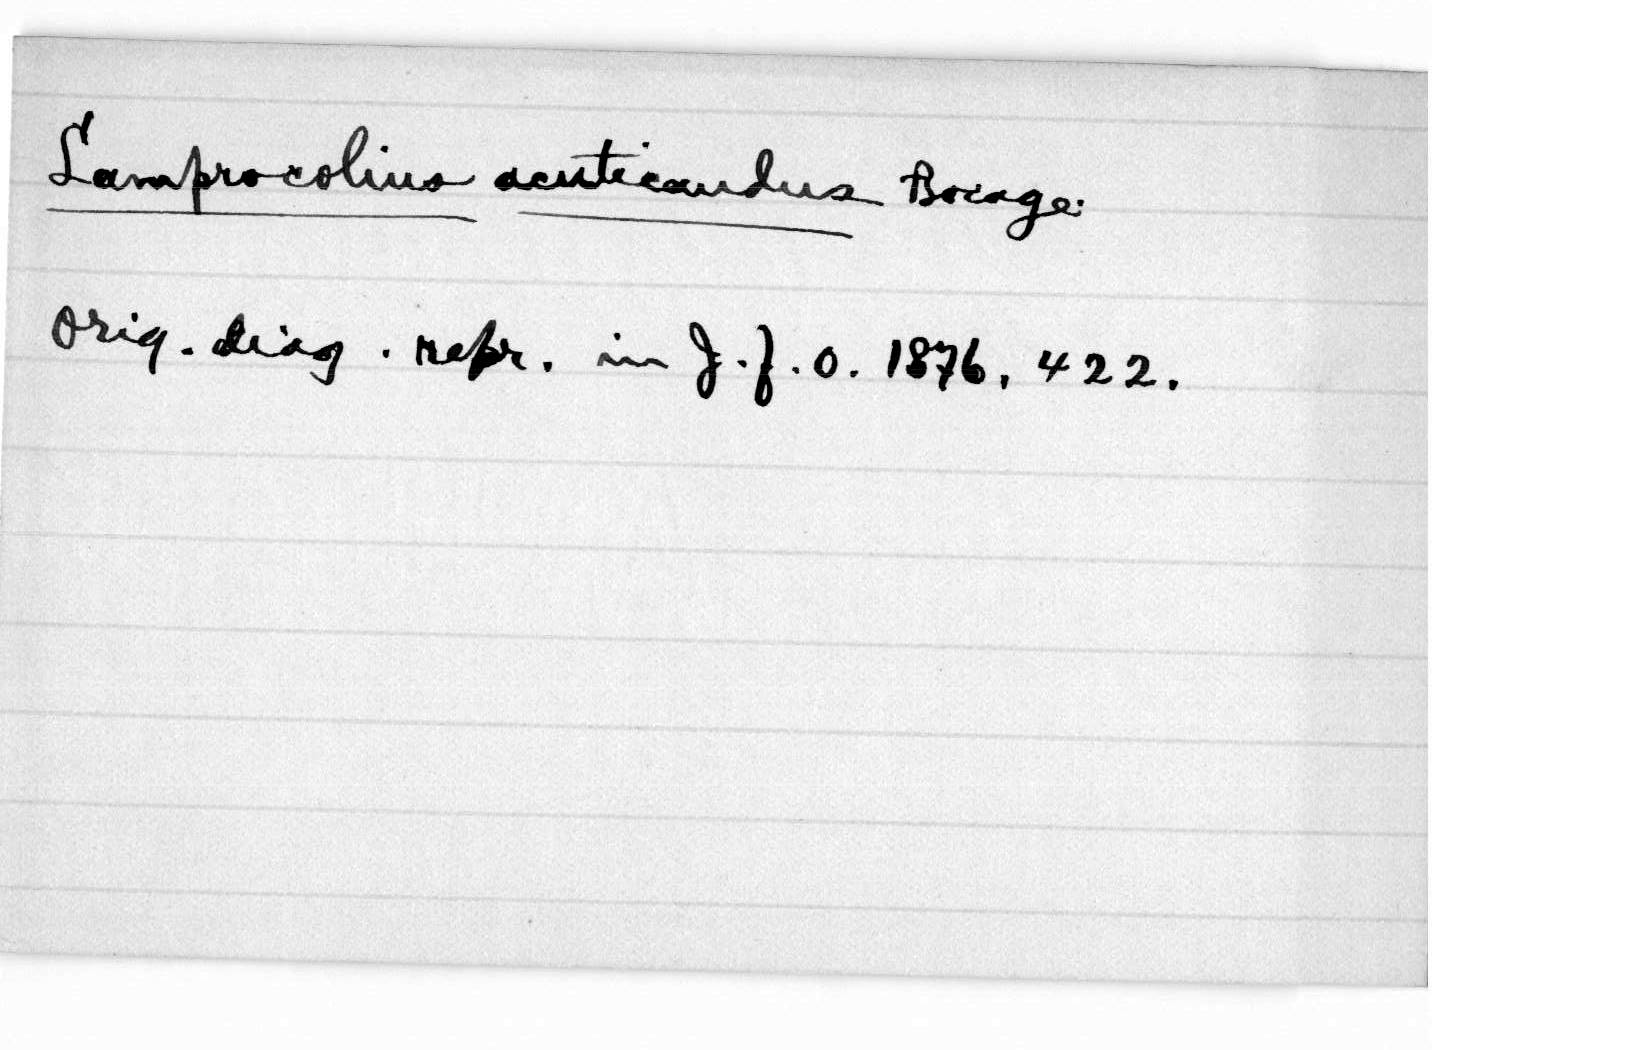 Lamprocolius acuticaudus Bocage.
Orig. diag. repr. in J.f.O. 1876, 422.